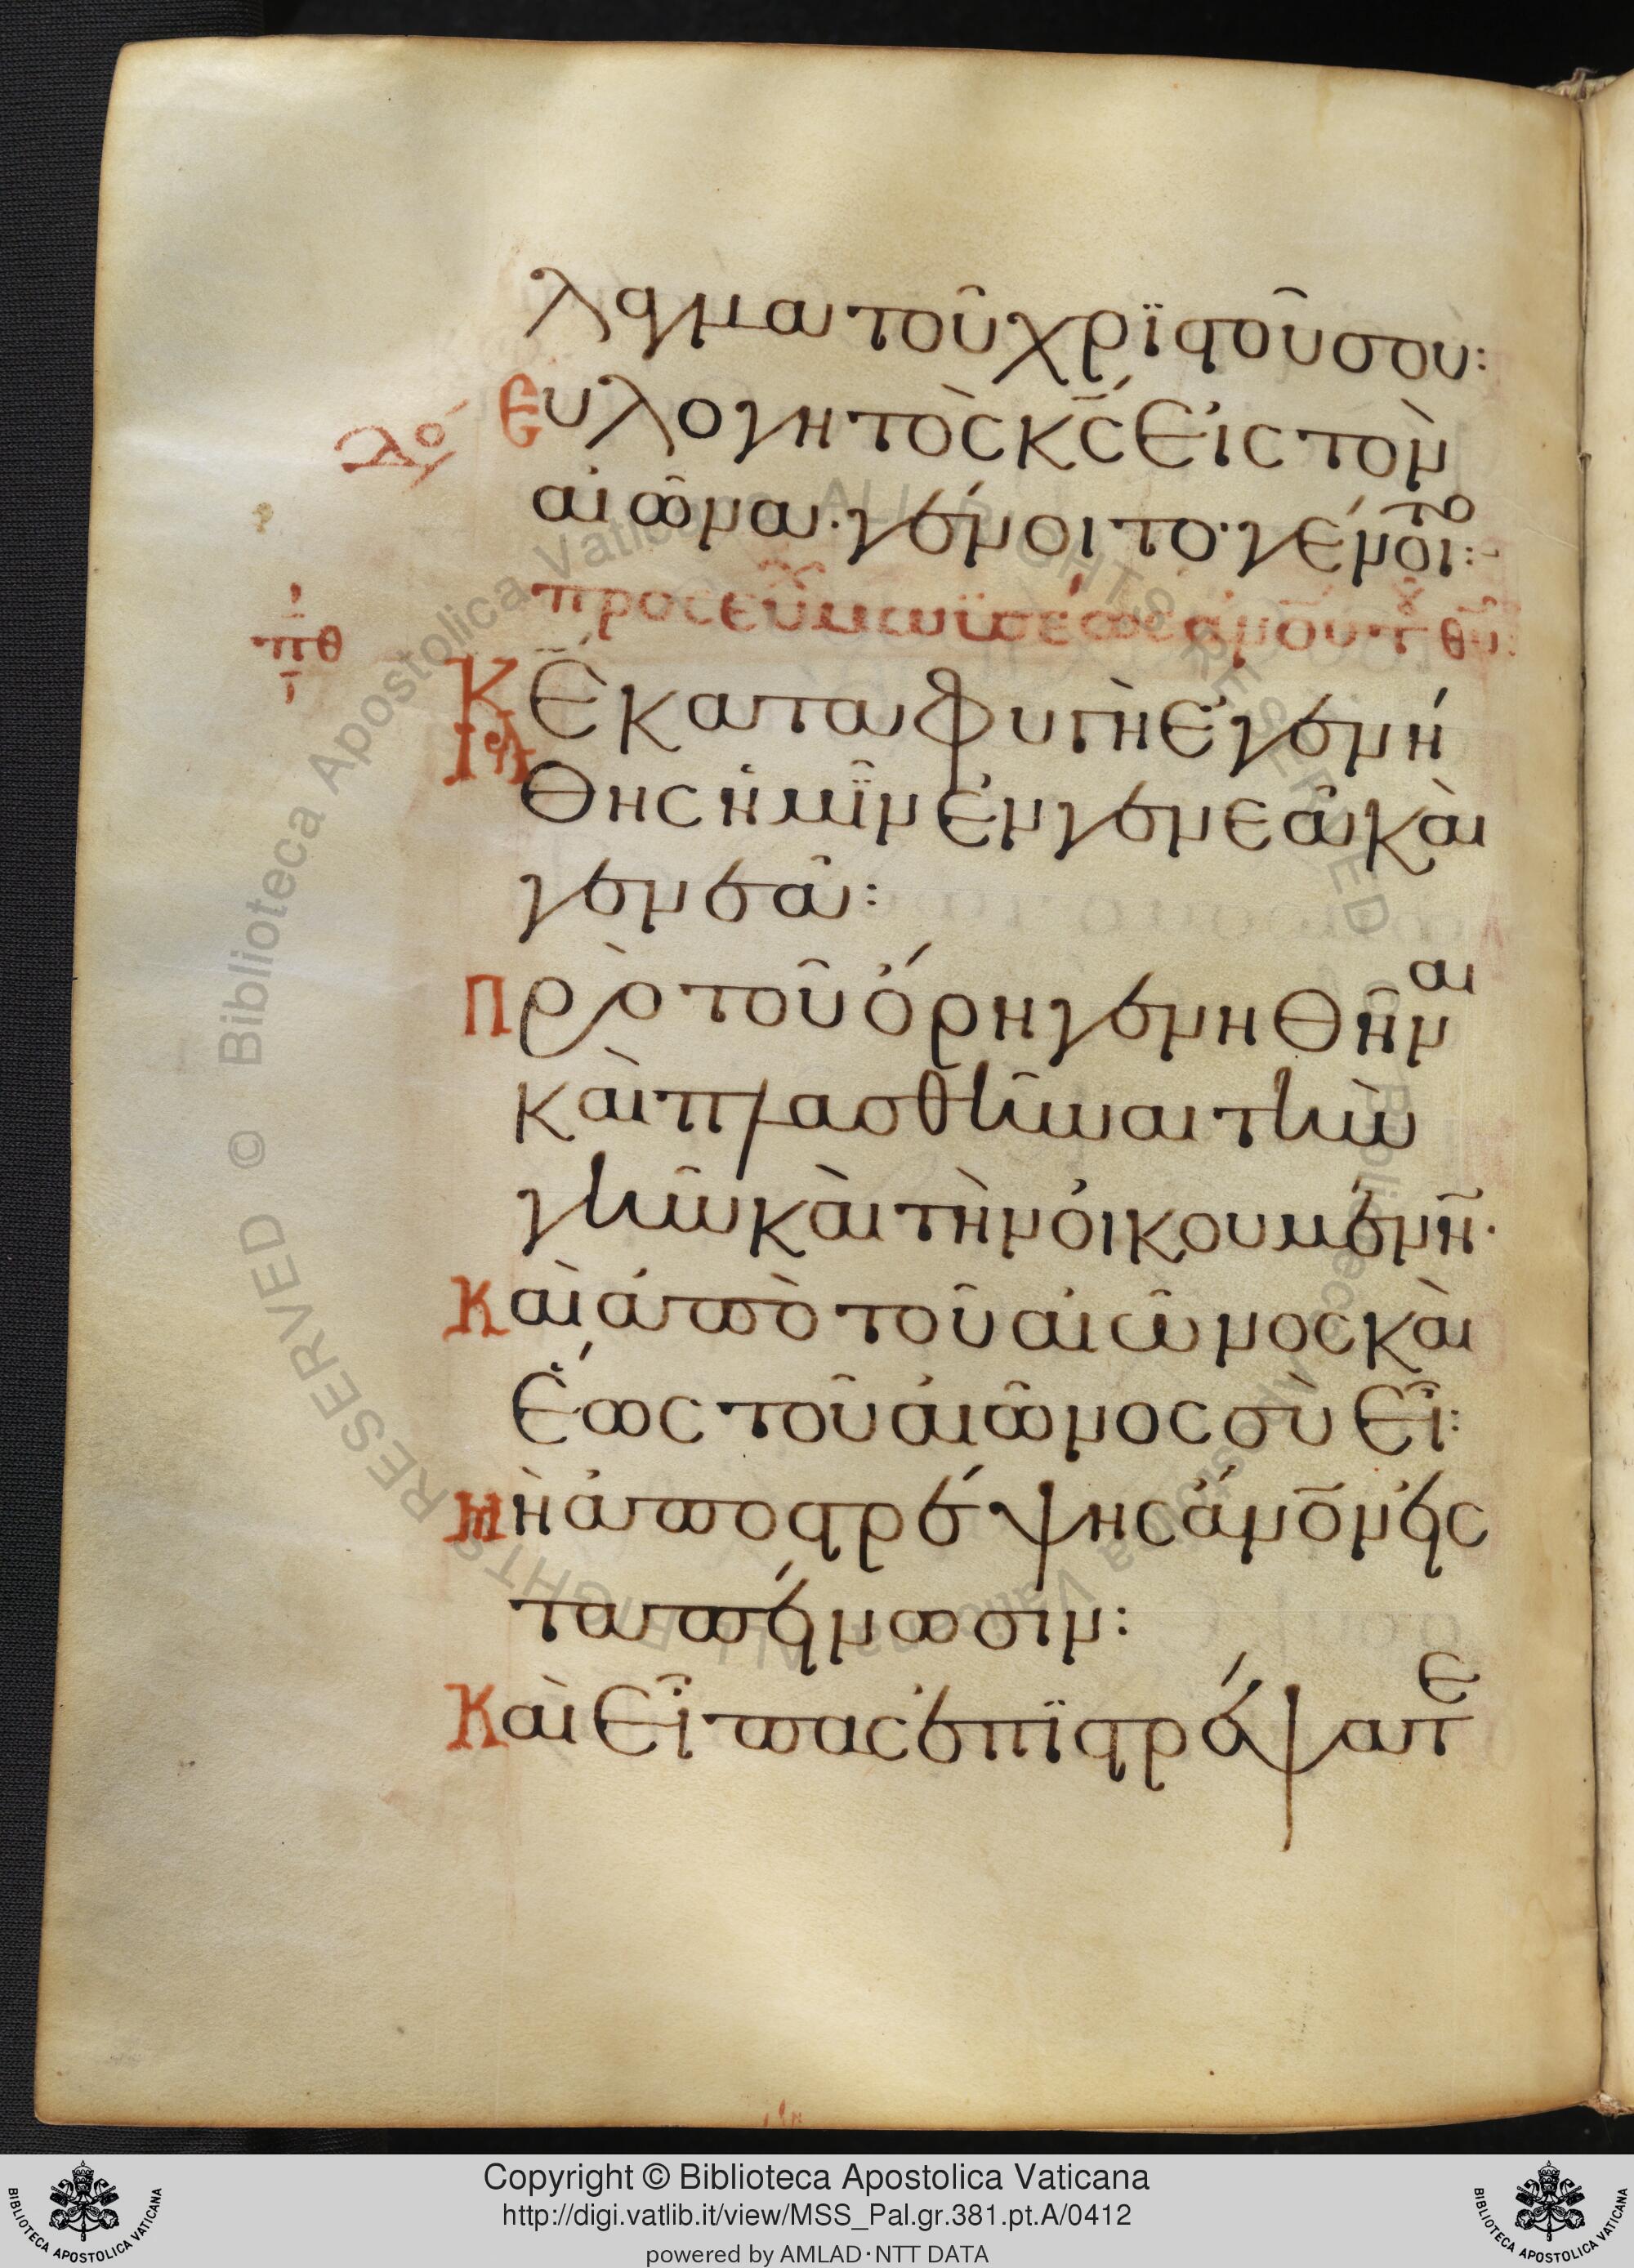 λαγμα τοῦ χριστοῦ σου:
Εὐλογητὸς κ̅ς̅ εἰς τὸν
αἰῶνα· γένοιτο· γένοιτο:
προσευχὴ τῶ μωϋσέως ἀνου τ θυ:
πθ
Κε̅ καταφυγὴ ἐγενή
θης ἡμῖν ἐν γενεᾶ καὶ
γενεᾶ:
Πρὸ τοῦ ὄρη γενηθῆναι
καὶ πλασθῆναι τὴν
γῆν καὶ τὴν οἰκουμένη̅·
Καὶ ἀπὸ τοῦ αἰῶνος καὶ
ἕως τοῦ αἰῶνος σὺ εἶ:
Μὴ ἀποστρέψης ἄνο̅ν εἰς
ταπείνωσιν:
Καὶ εἶπας ἐπϊστράψατε
© Biblioteca Apostolica Vaticana ALL RIGHTS RESERVED
Copyright © Biblioteca Apostolica Vaticana
http://digi.vatlib.it/view/MSS_Pal.gr.381.pt.A/0412
powered by AMLAD·NTT DATA
BIBLIOTECA APOSTOLICA VATICANA
BIBLIOTECA APOSTOLICA VATICANA